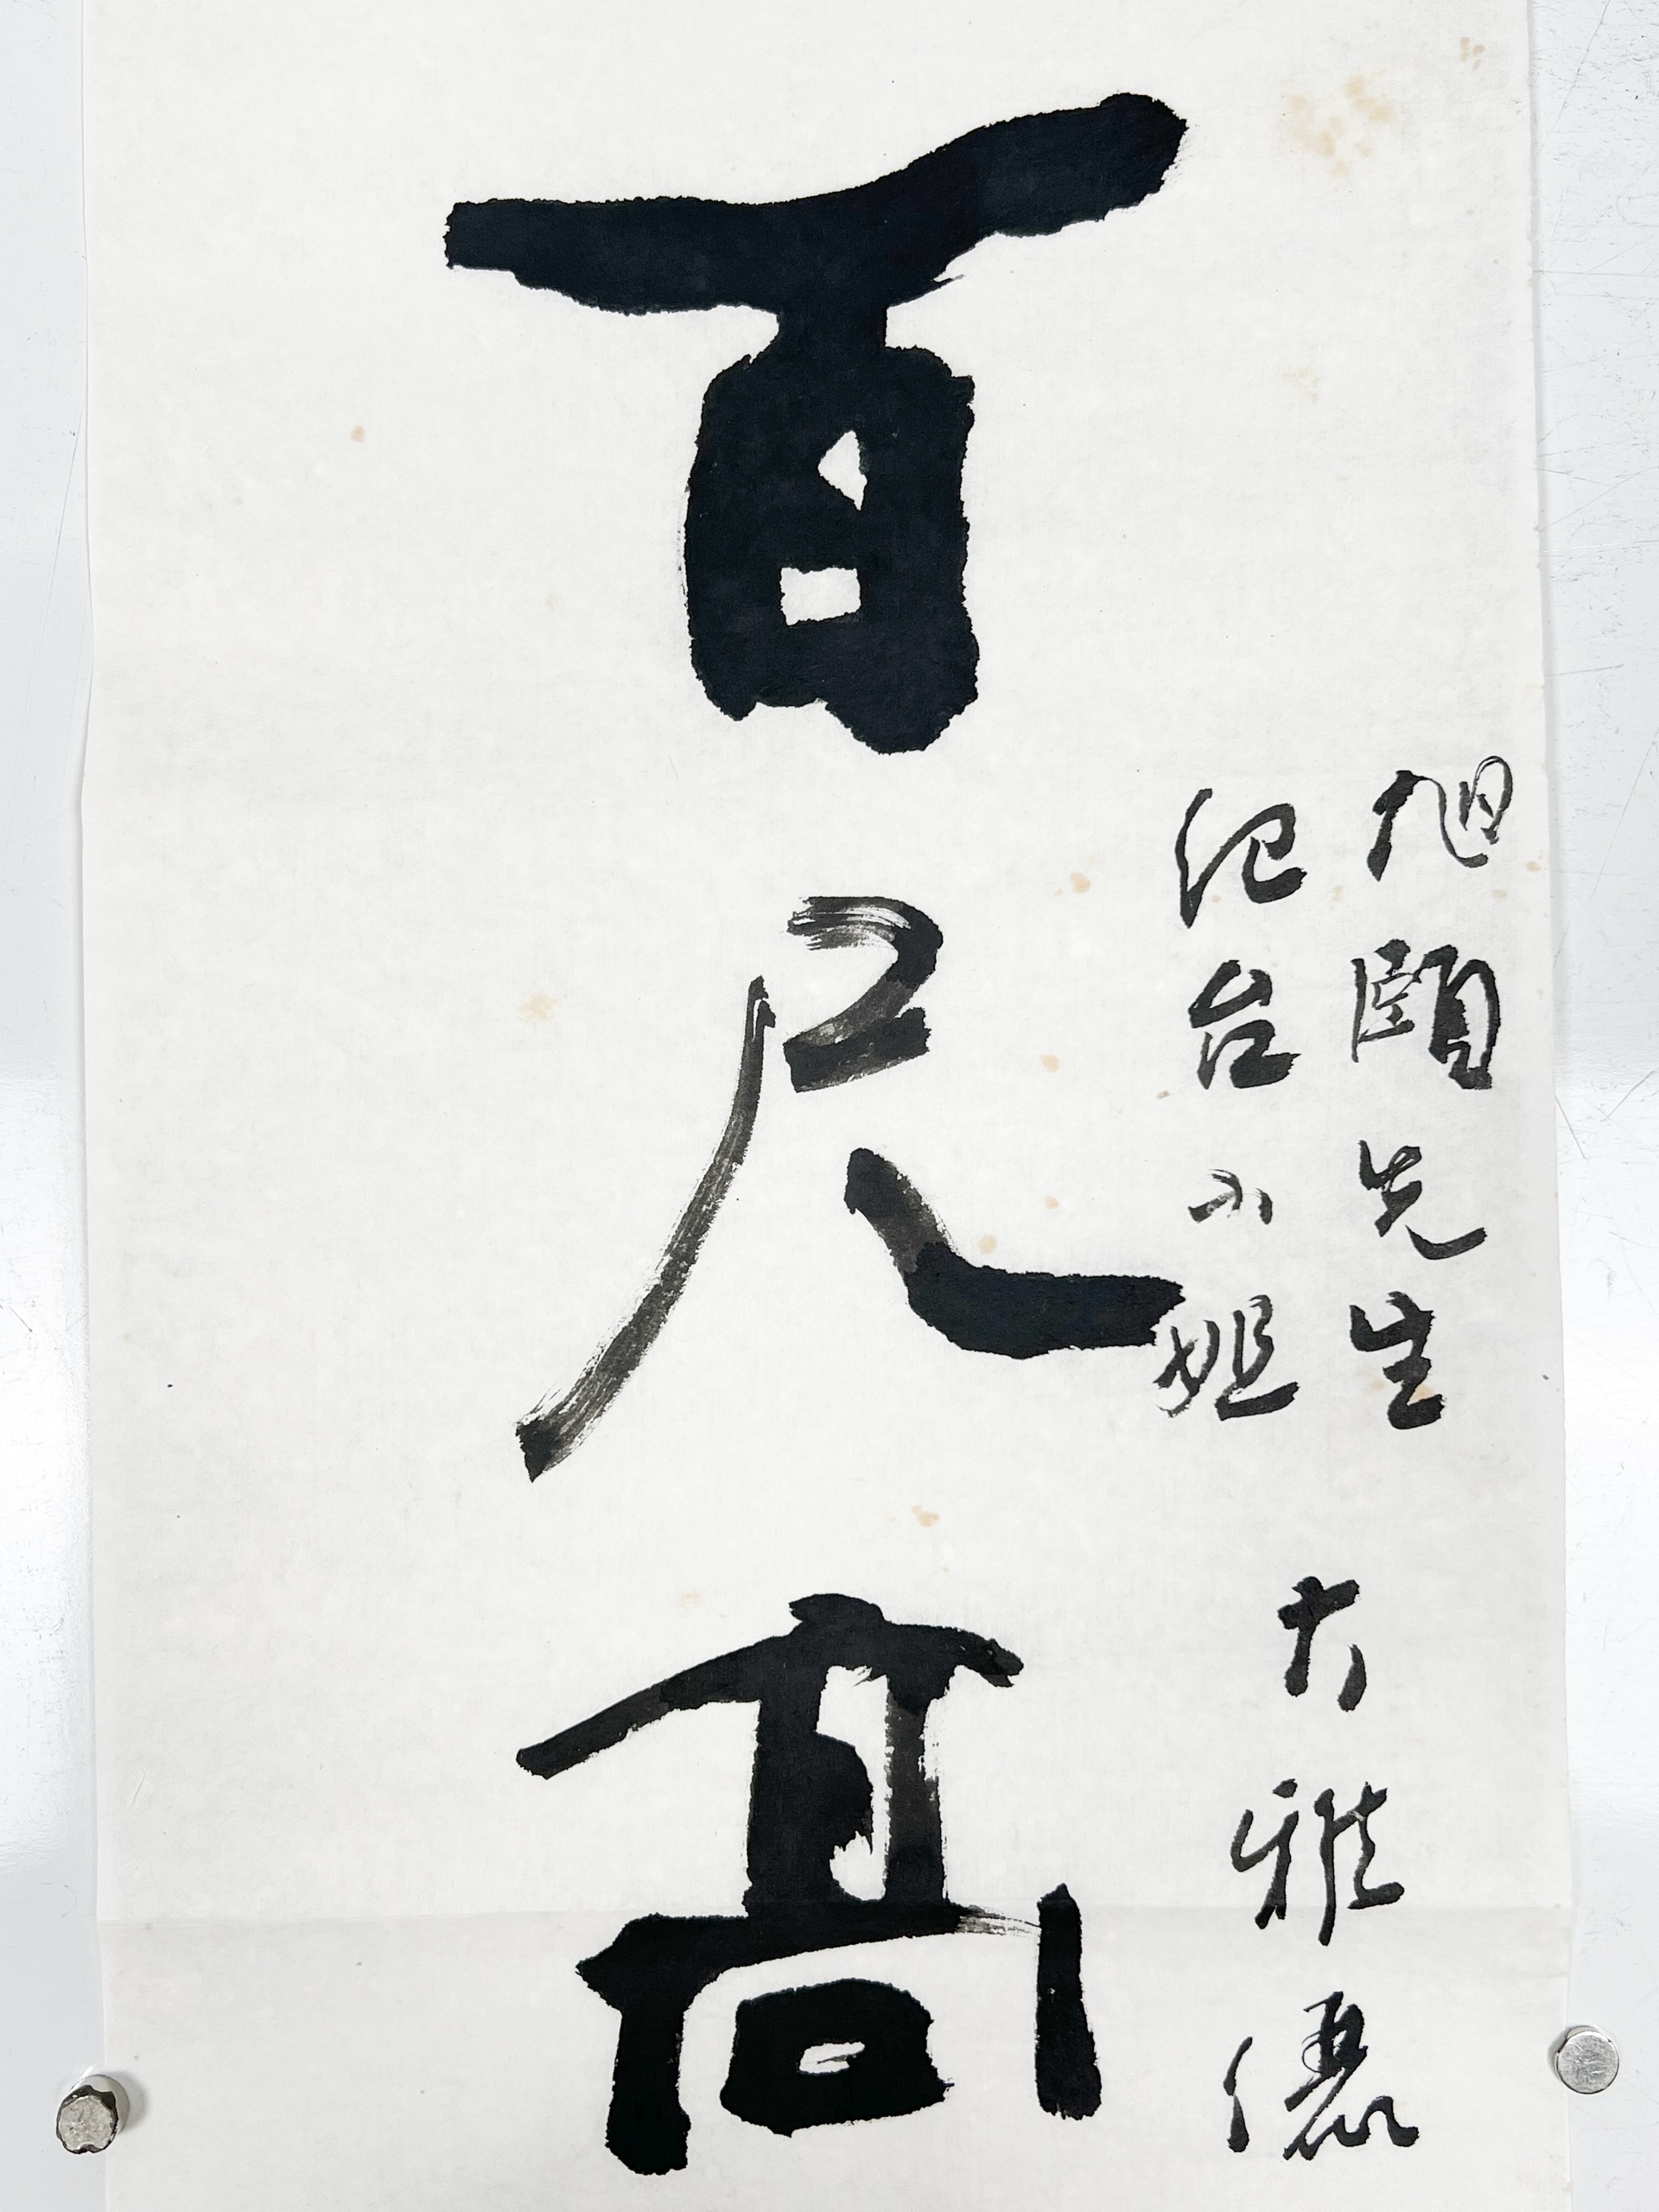 旭頤先生
紀台小姐
大雅儷
百尺高